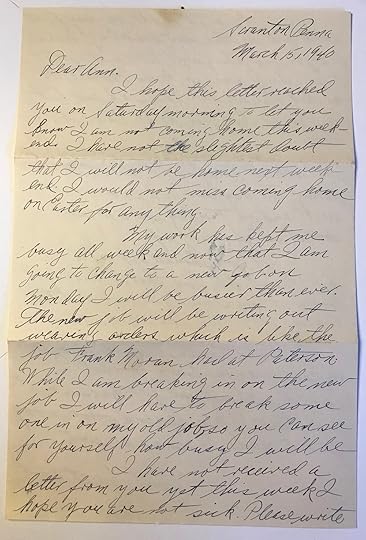 Scranton Penna
March 15, 1940
Dear Ann.
I hope this letter reached
you on Saturday morning to let you
know I am not coming home this week-
end. I have not the slightest doubt
that I will not be home next week
end I would not miss coming home
on Easter for anything.
My work has kept me
busy all week and now that I am
going to change to a new job on
Monday I will be busier than ever.
The new job will be writing out
weaving orders which is like the
job Frank Moran had at Peterson.
While I am breaking in on the new
job I will have to break some
one in on my old job, so you can see
for yourself how busy I will be
I have not received a
letter from you yet this week I
hope you are not sick. Please write